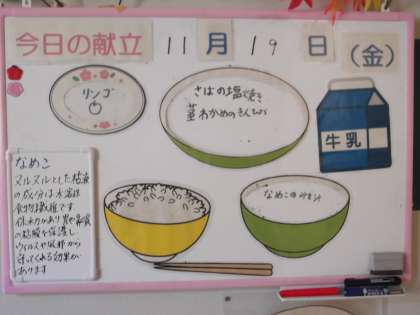 今日の献立 11月19日(金)
リンゴ
さばの塩焼き
茎わかめのきんぴら
牛乳
なめこのみそ汁
なめこ
ヌルヌルとした粘液
の成分は水溶性
食物繊維です。
保水力があり胃や鼻喉
の粘膜を保護し
ウイルスや風邪から
守ってくれる効果が
あります